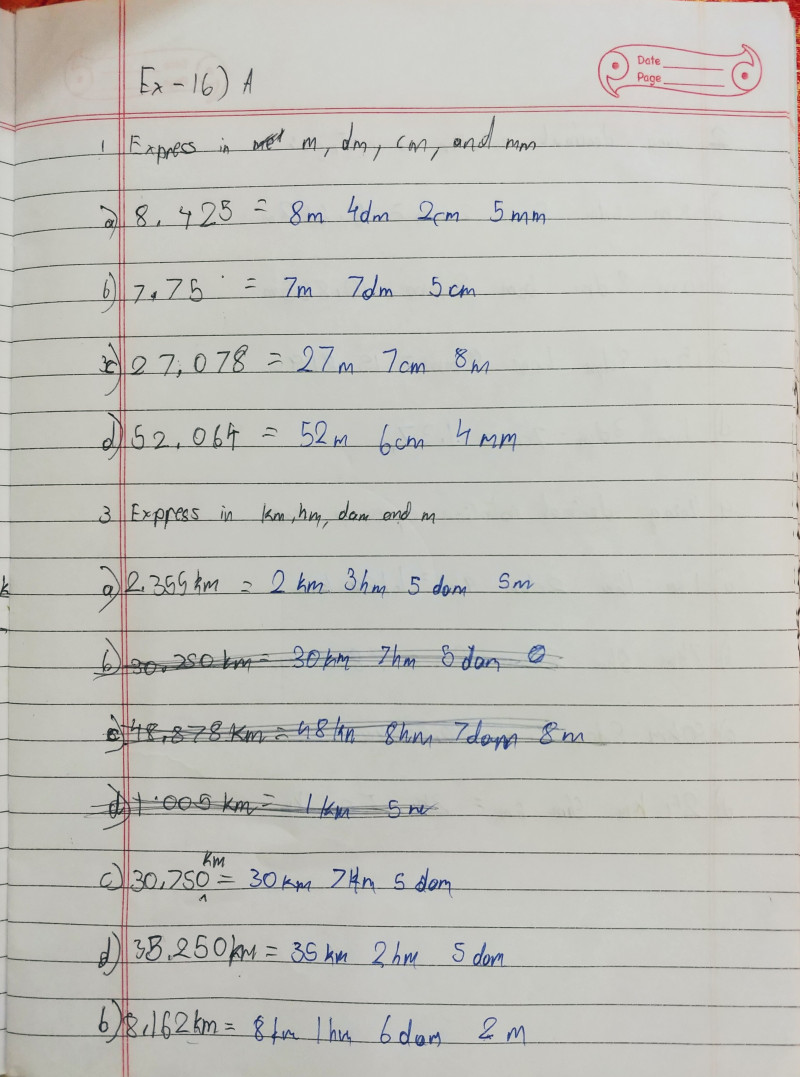 Date
Page
Ex - 16) A
1 Express in m, dm, cm, and mm
a) 8.425 = 8m 4dm 2cm 5mm
b) 7.75 = 7m 7dm 5cm
c) 27.078 = 27m 7cm 8m
d) 52.064 = 52m 6cm 4mm
3 Express in km, hm, dam and m
a) 2.355km = 2 km 3hm 5 dam 5m
b) 30.250 km = 30km 7hm 5 dam 0
c) 48.878 km = 48km 8hm 7dam 8m
d) 1.005 km = 1 km 5m
c) 30.750 km = 30km 7hm 5 dam
d) 35.250km = 35km 2hm 5 dam
b) 8.162km = 8km 1hm 6dam 2 m